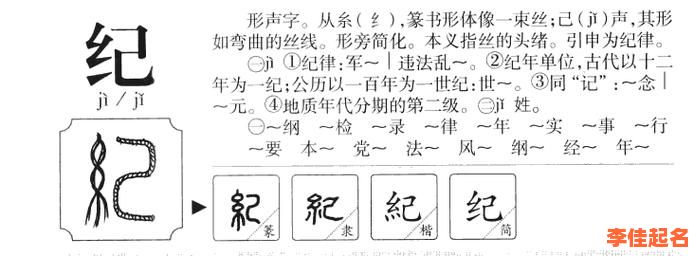 纪
jì / jǐ
形声字。从糸(纟),篆书形体像一束丝;己(jǐ)声,其形
如弯曲的丝线。形旁简化。本义指丝的头绪。引申为纪律。
㊀jì ①纪律:军～｜违法乱～。②纪年单位,古代以十二
年为一纪;公历以一百年为一世纪:世～。③同“记”:～念｜
～元。④地质年代分期的第二级。㊁jǐ 姓。
㊀～纲 ～检 ～录 ～律 ～年 ～实 ～事 ～行
～要 本～ 党～ 法～ 风～ 纲～ 经～ 年～
紀 篆 紀 隶 紀 楷 纪 简
李佳起名